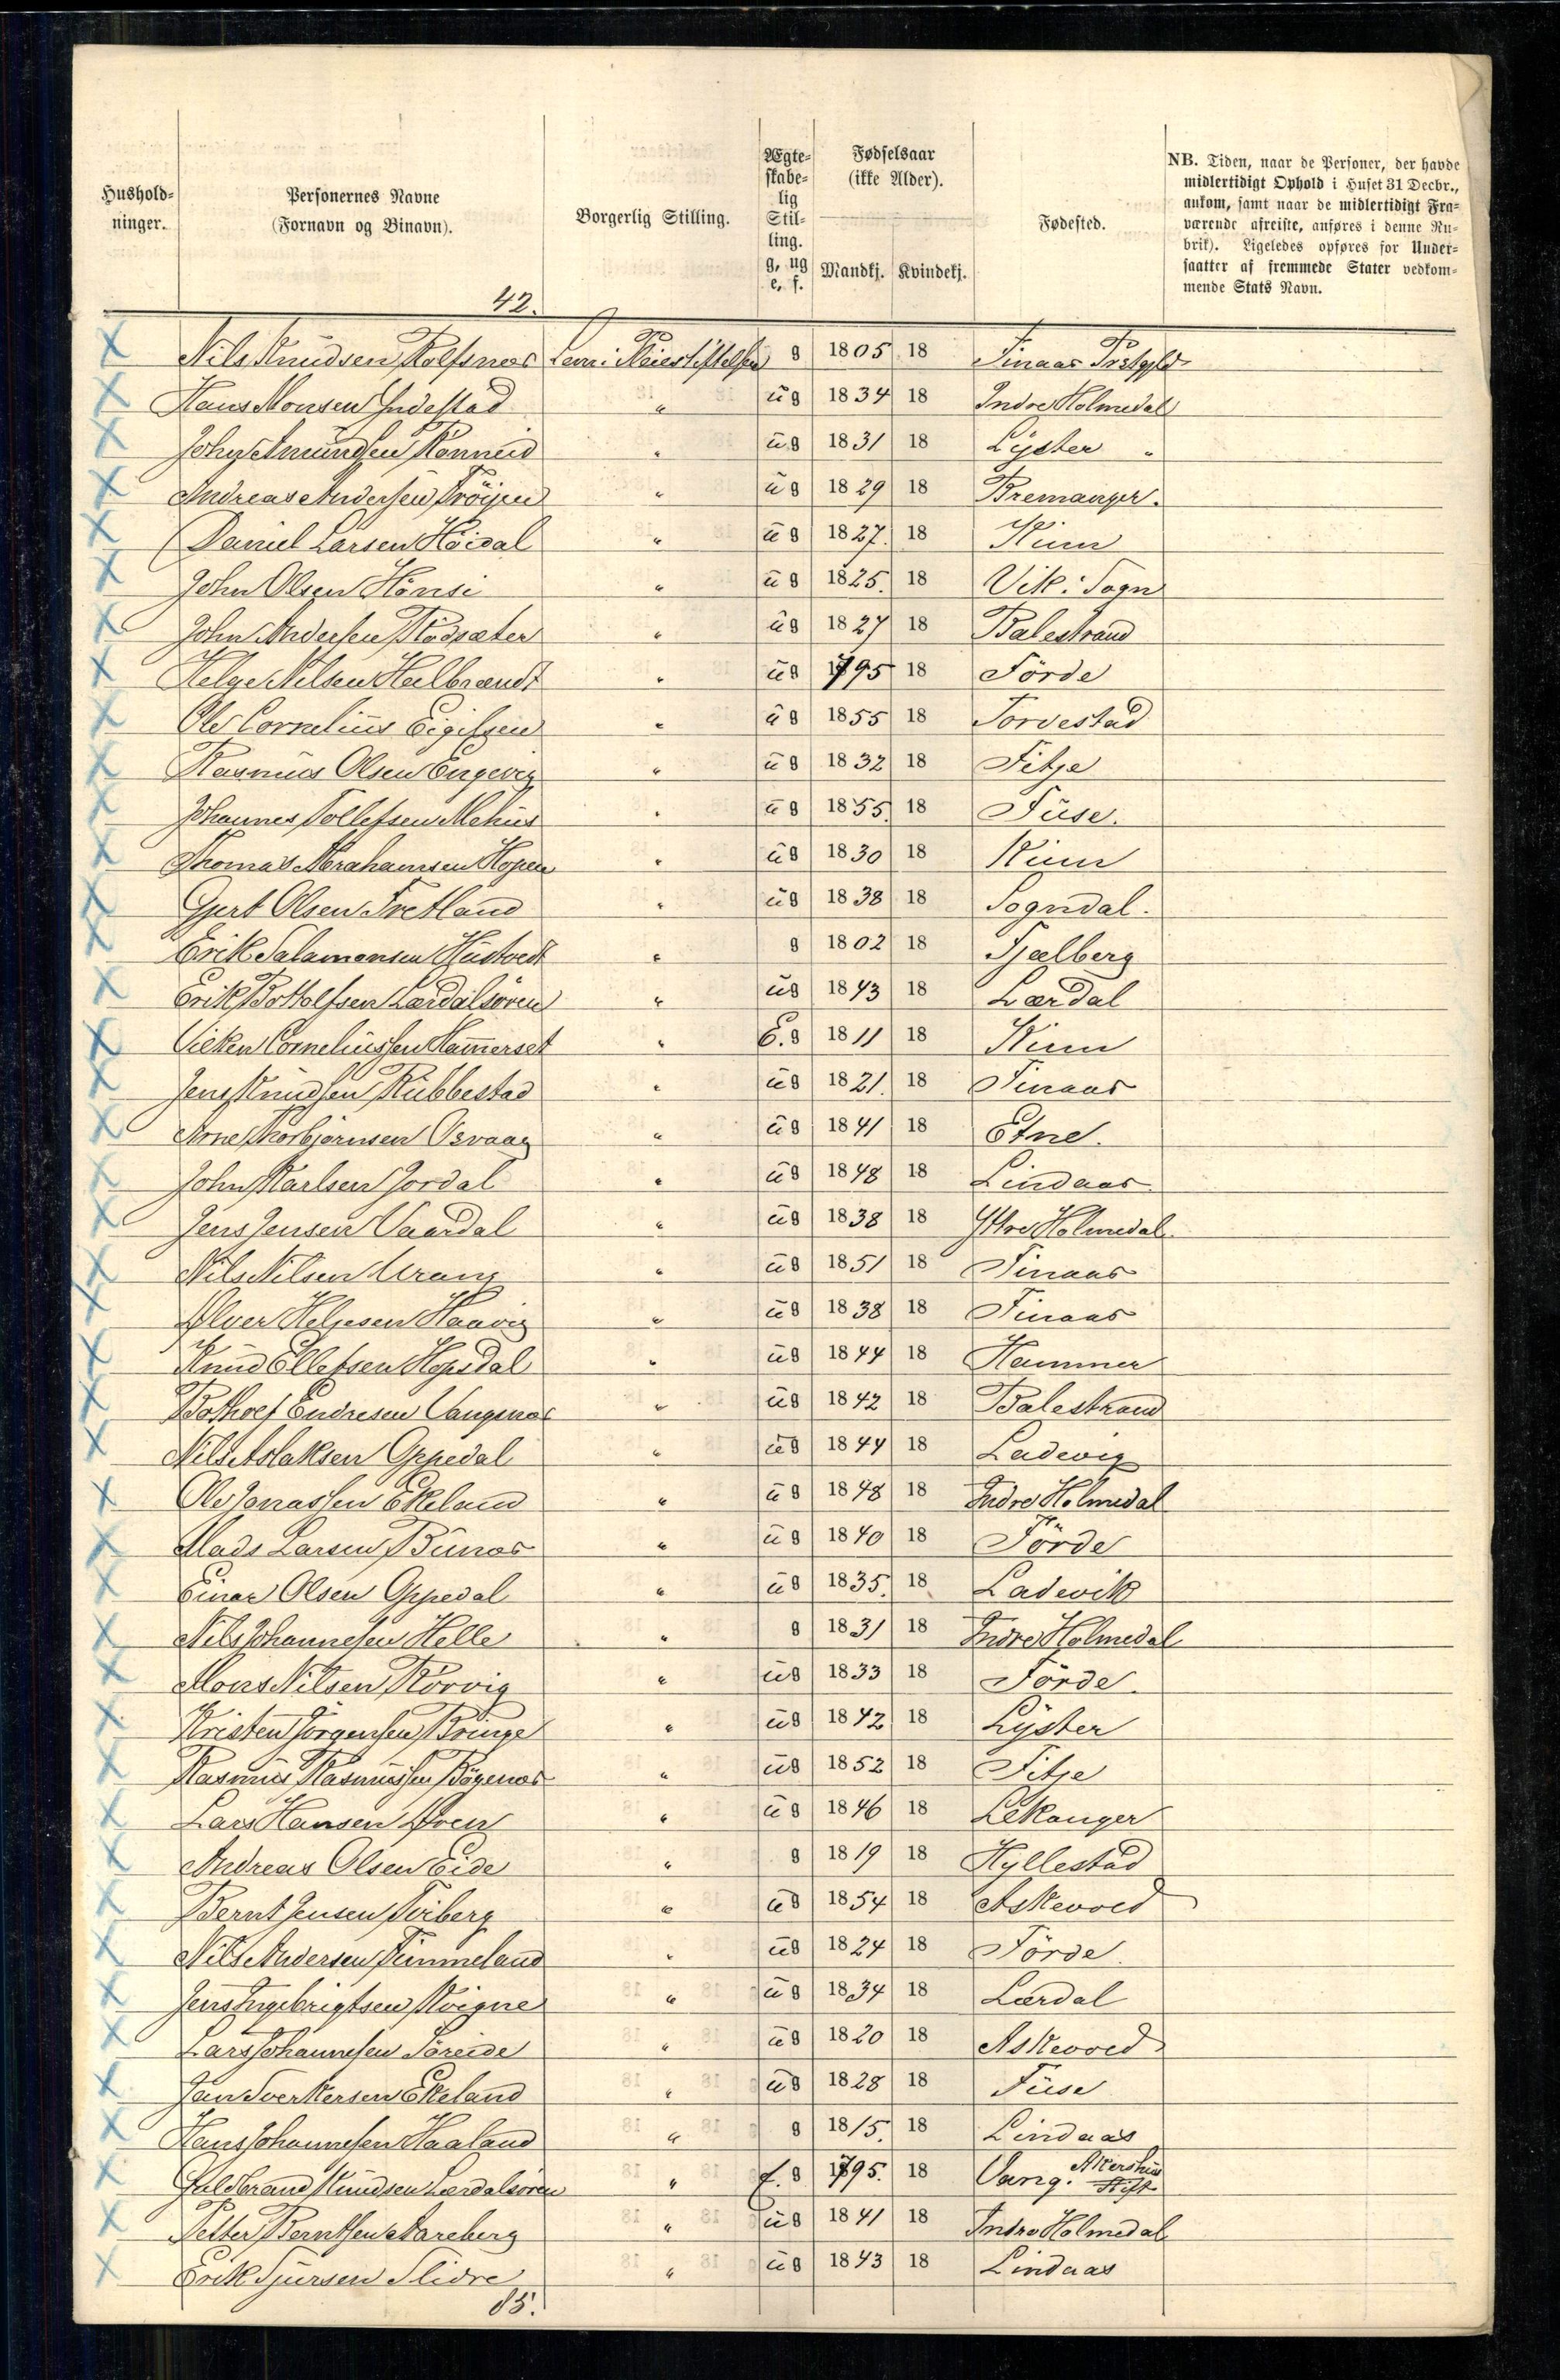 Hushold-
ninger.
Personernes Navne
(Fornavn og Binavn).
Borgerlig Stilling.
Ægte-
skabe-
lig
Stil-
ling.
g, ug
e, f.
Fødselsaar
(ikke Alder).
Mandkj. Kvindekj.
Fødested.
NB. Tiden, naar de Personer, der havde
midlertidigt Ophold i Huset 31 Decbr.,
ankom, samt naar de midlertidigt Fra-
værende afreiste, anføres i denne Ru-
brik). Ligeledes opføres for Under-
saatter af fremmede Stater vedkom-
mende Stats Navn.
42.
Nils Knudsen Rolfsnæs Lem i Pleiestiftelsen g 1805 18 Finaas Prstgjld
Hans Monsen Yndestad " ug 1834 18 Indre Holmedal
John Amundsen Rønneid " ug 1831 18 Lyster "
Andreas Andersen Frøijen " ug 1829 18 Bremanger.
Daniel Larsen Høidal " ug 1827. 18 Kinn
John Olsen Hønsi " ug 1825. 18 Vik i Sogn
John Andersen Rødsæter " ug 1827 18 Balestrand
Helge Nilsen Heelbrændt " ug 1795 18 Førde
Ole Cornelius Eigilsen " ug 1855 18 Torvestad
Rasmus Olsen Engevig " ug 1832 18 Fitje
Johannes Tollefsen Mehus " ug 1855. 18 Fuse.
Thomas Abrahamsen Hopen " ug 1830 18 Kinn
Gjert Olsen Fretland " ug 1838 18 Sogndal.
Erik Salamonsen Hustvedt " g 1802 18 Fjælberg
Erik Botholfsen Lærdalsøren " ug 1843 18 Lærdal
Vilken Corneliussen Hammerset " E. g 1811 18 Kinn
Jens Knudsen Rubbestad " ug 1821. 18 Finaas
Arne Thorbjørnsen Osvaag " ug 1841 18 Etne.
John Karlsen Jordal " ug 1848 18 Lindaas
Jens Jensen Vaardal " ug 1838 18 Ytre Holmedal.
Nils Nilsen Urang " ug 1851 18 Finaas
Alver Helgesen Haavig " ug 1838 18 Finaas
Knud Ellefsen Hopsdal " ug 1844 18 Hammer
Botholf Endresen Vangsnæs " ug 1842 18 Balestrand
Nils Aslaksen Oppedal " ug 1844 18 Ladevig
Ole Jonassen Ekeland " ug 1848 18 Indre Holmedal
Mads Larsen Bunæs " ug 1840 18 Førde
Einar Olsen Oppedal " ug 1835. 18 Ladevik
Nils Johannesen Helle " g 1831 18 Indre Holmedal
Mons Nilsen Rørvig " ug 1833 18 Førde.
Kristen Jørgensen Bringe " ug 1842 18 Lyster
Rasmus Rasmussen Bøgenæs " ug 1852 18 Fitje
Lars Hansen " ug 1846 18 Lekanger
Andreas Olsen Eide " g 1819 18 Hyllestad
Bernt Jensen " ug 1854 18 Askevold
Nils Andersen Fimmeland " ug 1824 18 Førde.
Jens Ingebrigtsen Kvigne " ug 1834 18 Lærdal
Lars Johannesen Søreide " ug 1820 18 Askevold
Jan Sverkersen Ekeland " ug 1828 18 Fuse
Hans Johannesen Haaland " g 1815. 18 Lindaas
Guldbrand Knudsen Lærdalsøren " f. g 1795. 18 Vang. Akershus Stift
Petter Berntsen Aareberg " ug 1841 18 Indre Holmedal
Erik Sjursen Slidre " ug 1843 18 Lindaas
85.